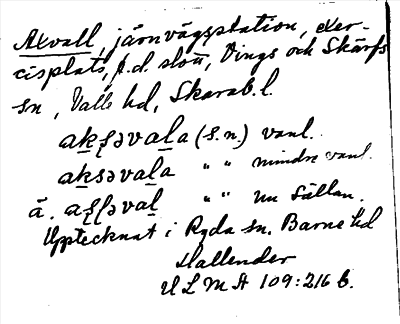 Axvall, järnvägsstation, exer-
cisplats, f.d. slott, Vings och Skärfs
sn, Valle hd, Skarab. l.
akʂəvala (s.n.) vanl.
aksəvala " " mindre vanl.
ä. " " nu sällan.
Upptecknat i Ryda sn. Barne hd
Hallender
ULMA 109:216 b.